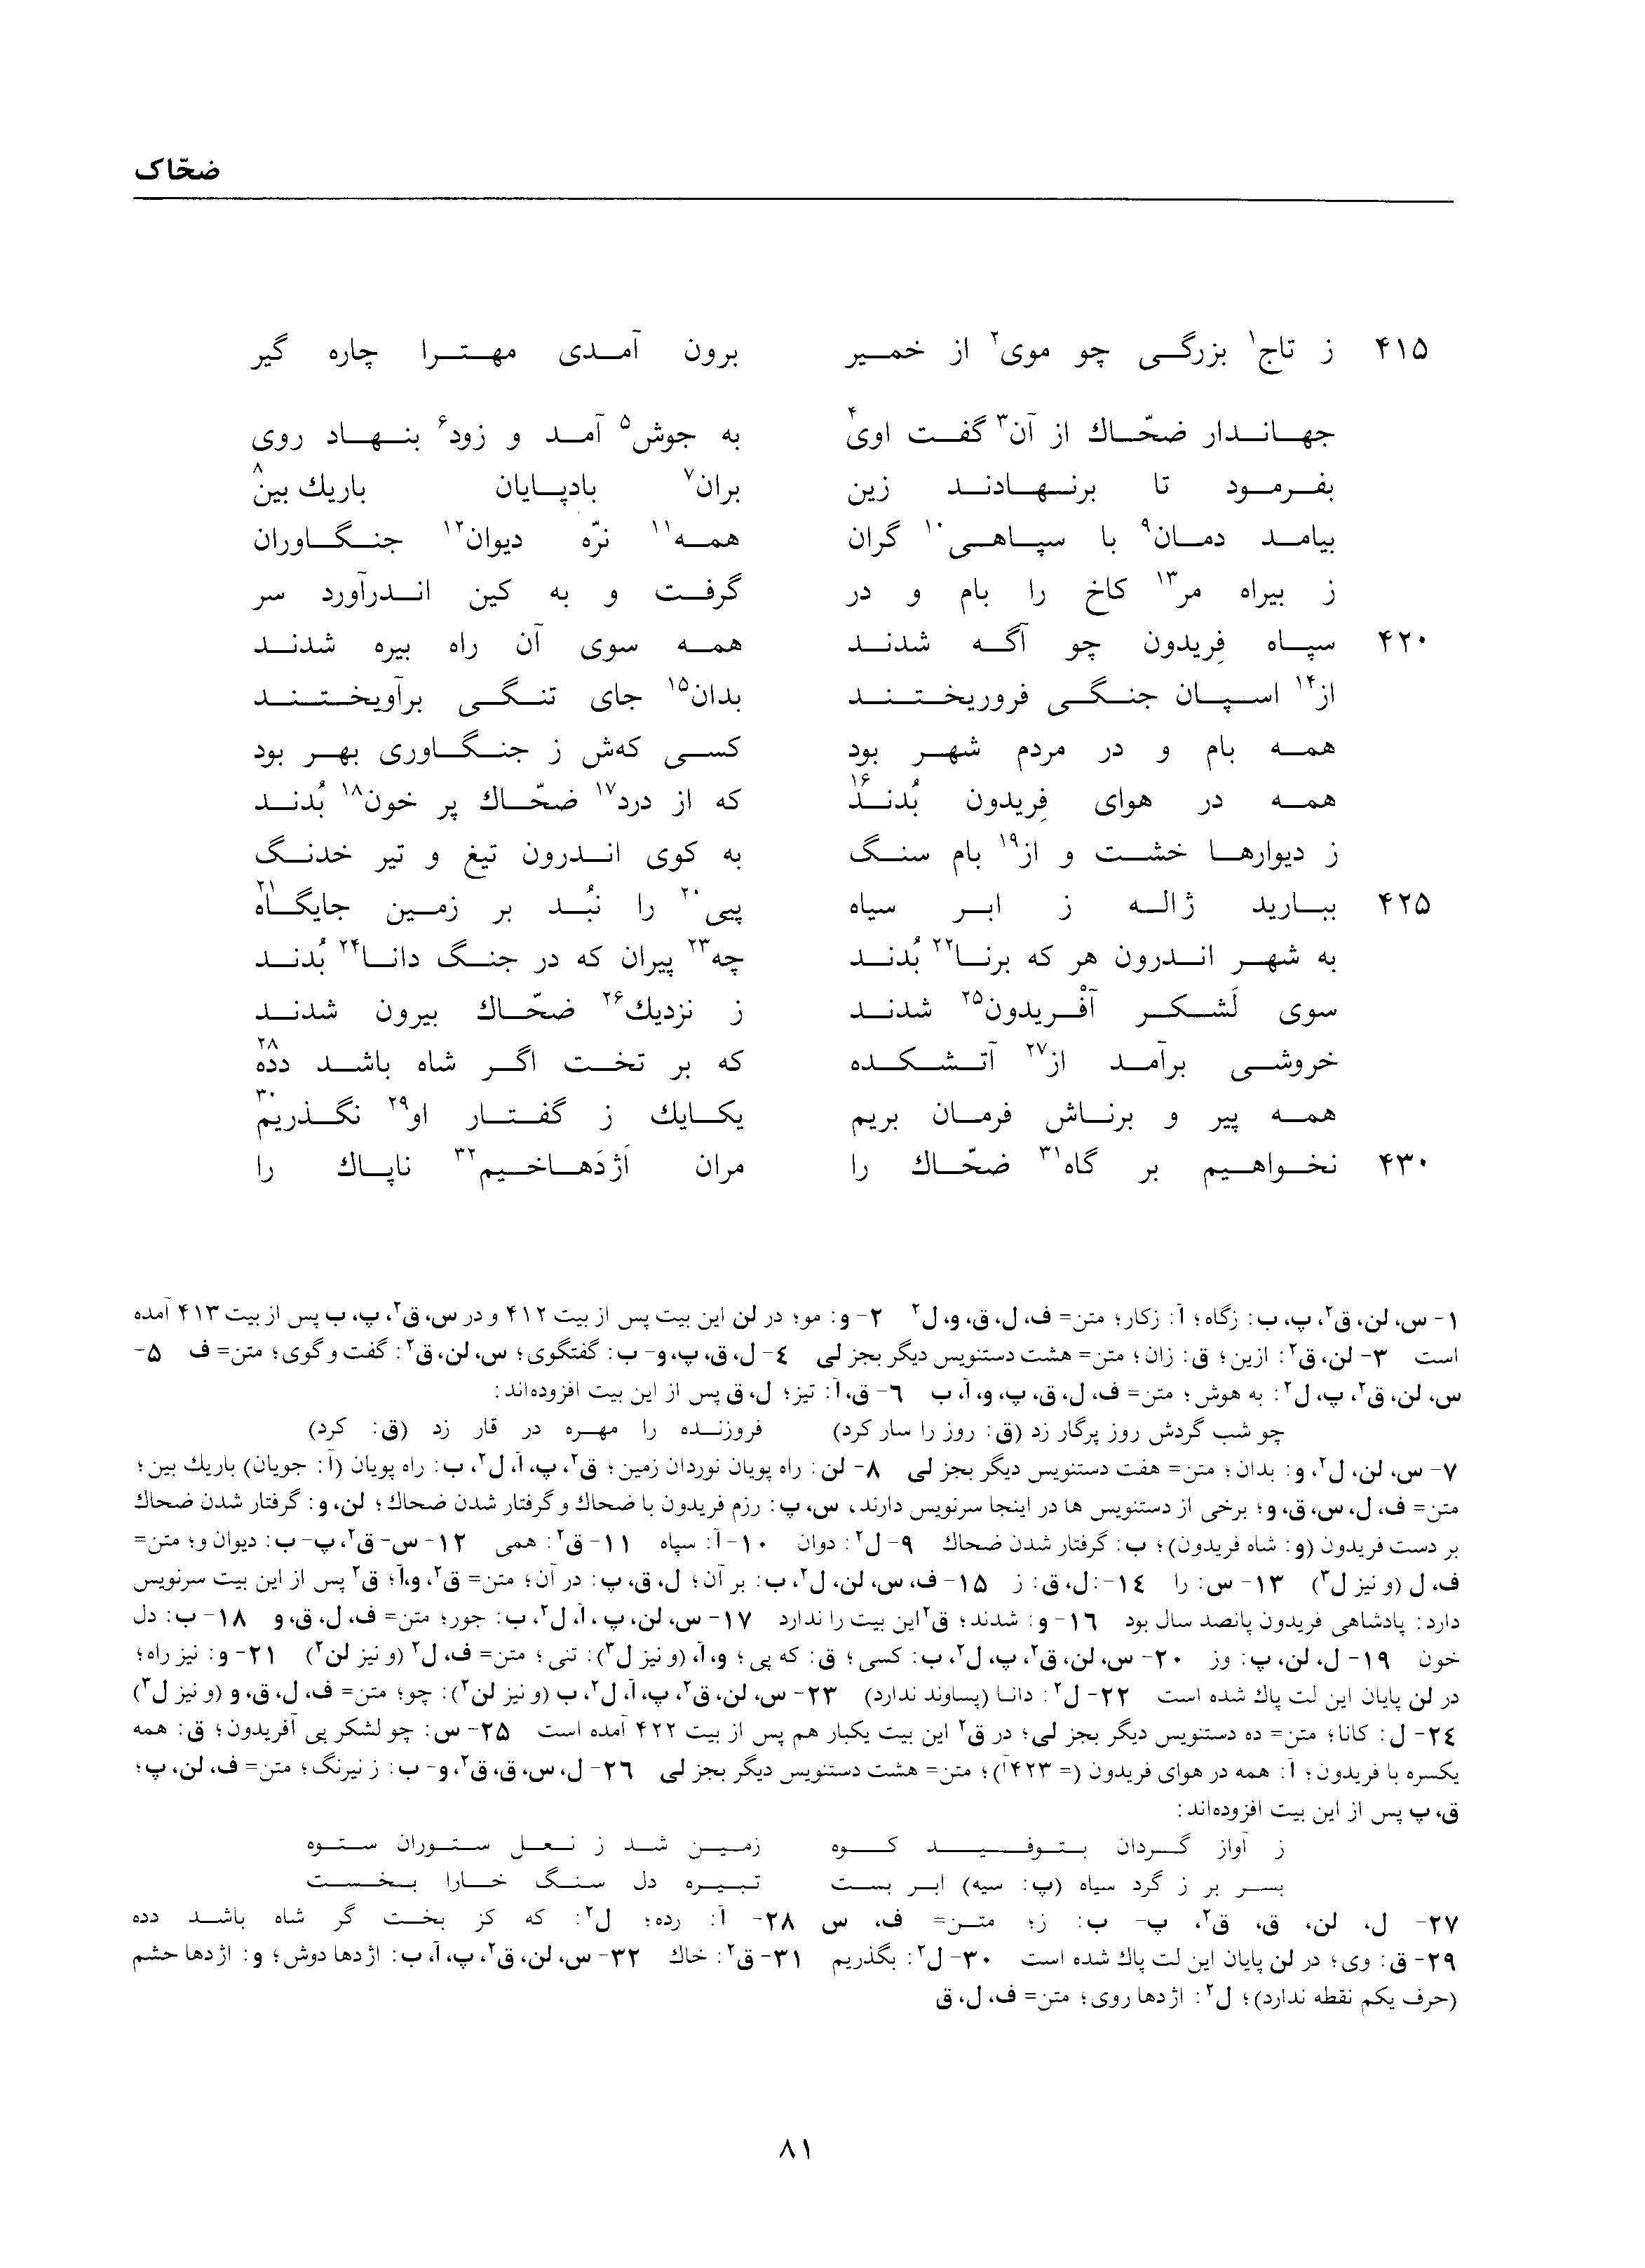 ضحّاک
۴۱۵ ز تاج۱ بزرگی چو موی۲ از خمیر برون آمدی مهترا چاره گیر
جهاندار ضحّاك از آن۳ گفت اوی۴ به جوش۵ آمد و زود۶ بنهاد روی
بفرمود تا برنهادند زین بران۷ بادپایان باریك بین۸
بیامد دمان۹ با سپاهی۱۰ گران همه۱۱ نرّه دیوان۱۲ جنگاوران
ز بیراه مر۱۳ کاخ را بام و در گرفت و به کین اندرآورد سر
۴۲۰ سپاه فِریدون چو آگه شدند همه سوی آن راه بیره شدند
از۱۴ اسپان جنگی فروریختند بدان۱۵ جای تنگی برآویختند
همه بام و در مردم شهر بود کسی که‌ش ز جنگاوری بهر بود
همه در هوای فِریدون بُدند۱۶ که از درد۱۷ ضحّاك پر خون۱۸ بُدند
ز دیوارها خشت و از۱۹ بام سنگ به کوی اندرون تیغ و تیر خدنگ
۴۲۵ ببارید ژاله ز ابر سیاه پیی۲۰ را نبُد بر زمین جایگاه۲۱
به شهر اندرون هر که برنا۲۲ بُدند چه۲۳ پیران که در جنگ دانا۲۴ بُدند
سوی لَشکر آفْریدون۲۵ شدند ز نزدیك۲۶ ضحّاك بیرون شدند
خروشی برآمد از۲۷ آتشکده که بر تخت اگر شاه باشد دده۲۸
همه پیر و برناش فرمان بریم یکایك ز گفتار او۲۹ نگذریم۳۰
۴۳۰ نخواهیم بر گاه۳۱ ضحّاك را مران اَژدَهاخیم۳۲ ناپاك را
۱- س، لن، ق۲، پ، ب: زگاه؛ آ: زکار؛ متن= ف، ل، ق، و، ل۲ ۲- و: مو؛ در لن این بیت پس از بیت ۴۱۲ و در س، ق۲، پ، ب پس از بیت ۴۱۳ آمده
است ۳- لن، ق۲: ازین؛ ق: زان؛ متن= هشت دستنویس دیگر بجز لی ۴- ل، ق، پ، و- ب: گفتگوی؛ س، لن، ق۲: گفت و گوی؛ متن= ف ۵-
س، لن، ق۲، پ، ل۲: به هوش؛ متن= ف، ل، ق، پ، و، آ، ب ۶- ق، آ: تیز؛ ل، ق پس از این بیت افزوده‌اند:
چو شب گردش روز پرگار زد (ق: روز را سار کرد) فروزنده را مهره در قار زد (ق: کرد)
۷- س، لن، ل۲، و: بدان؛ متن= هفت دستنویس دیگر بجز لی ۸- لن: راه پویان نوردان زمین؛ ق۲، پ، آ، ل۲، ب: راه پویان (آ: جویان) باریك بین؛
متن= ف، ل، س، ق، و؛ برخی از دستنویس ها در اینجا سرنویس دارند، س، پ: رزم فریدون با ضحاك و گرفتار شدن ضحاك؛ لن، و: گرفتار شدن ضحاك
بر دست فریدون (و: شاه فریدون)؛ ب: گرفتار شدن ضحاك ۹- ل۲: دوان ۱۰-آ: سپاه ۱۱- ق۲: همی ۱۲- س- ق۲، پ- ب: دیوان و؛ متن=
ف، ل (و نیز ل۳) ۱۳- س: را ۱۴-:ل، ق: ز ۱۵- ف، س، لن، ل۲، ب: بر آن؛ ل، ق، پ: در آن؛ متن= ق۲، و، آ؛ ق۲ پس از این بیت سرنویس
دارد: پادشاهی فریدون پانصد سال بود ۱۶- و: شدند؛ ق۲ این بیت را ندارد ۱۷- س، لن، پ، آ، ل۲، ب: جور؛ متن= ف، ل، ق، و ۱۸- ب: دل
خون ۱۹- ل، لن، پ: وز ۲۰- س، لن، ق۲، پ، ل۲، ب: کسی؛ ق: که پی؛ و، آ، (و نیز ل۳): تنی؛ متن= ف، ل۲ (و نیز لن۲) ۲۱- و: نیز راه؛
در لن پایان این لت پاك شده است ۲۲- ل۲: دانا (پساوند ندارد) ۲۳- س، لن، ق۲، پ، آ، ل۲، ب (و نیز لن۲): چو؛ متن= ف، ل، ق، و (و نیز ل۳)
۲۴- ل: کانا؛ متن= ده دستنویس دیگر بجز لی؛ در ق۲ این بیت یکبار هم پس از بیت ۴۲۲ آمده است ۲۵- س: چو لشکر پی آفریدون؛ ق: همه
یکسره با فریدون؛ آ: همه در هوای فریدون (= ۴۲۳آ)؛ متن= هشت دستنویس دیگر بجز لی ۲۶- ل، س، ق، ق۲، و- ب: ز نیرنگ؛ متن= ف، لن، پ؛
ق، پ پس از این بیت افزوده‌اند:
ز آواز گردان بتوفید کوه زمین شد ز نعل ستوران ستوه
بسر بر ز گرد سیاه (پ: سیه) ابر بست تبیره دل سنگ خارا بخست
۲۷- ل، لن، ق، ق۲، پ- ب: ز؛ متن= ف، س ۲۸- آ: رده؛ ل۲: که کز بخت گر شاه باشد دده
۲۹- ق: وی؛ در لن پایان این لت پاك شده است ۳۰- ل۲: بگذریم ۳۱- ق۲: خاك ۳۲- س، لن، ق۲، پ، آ، ب: اژدها دوش؛ و: اژدها حشم
(حرف یکم نقطه ندارد)؛ ل۲: اژدها روی؛ متن= ف، ل، ق
۸۱